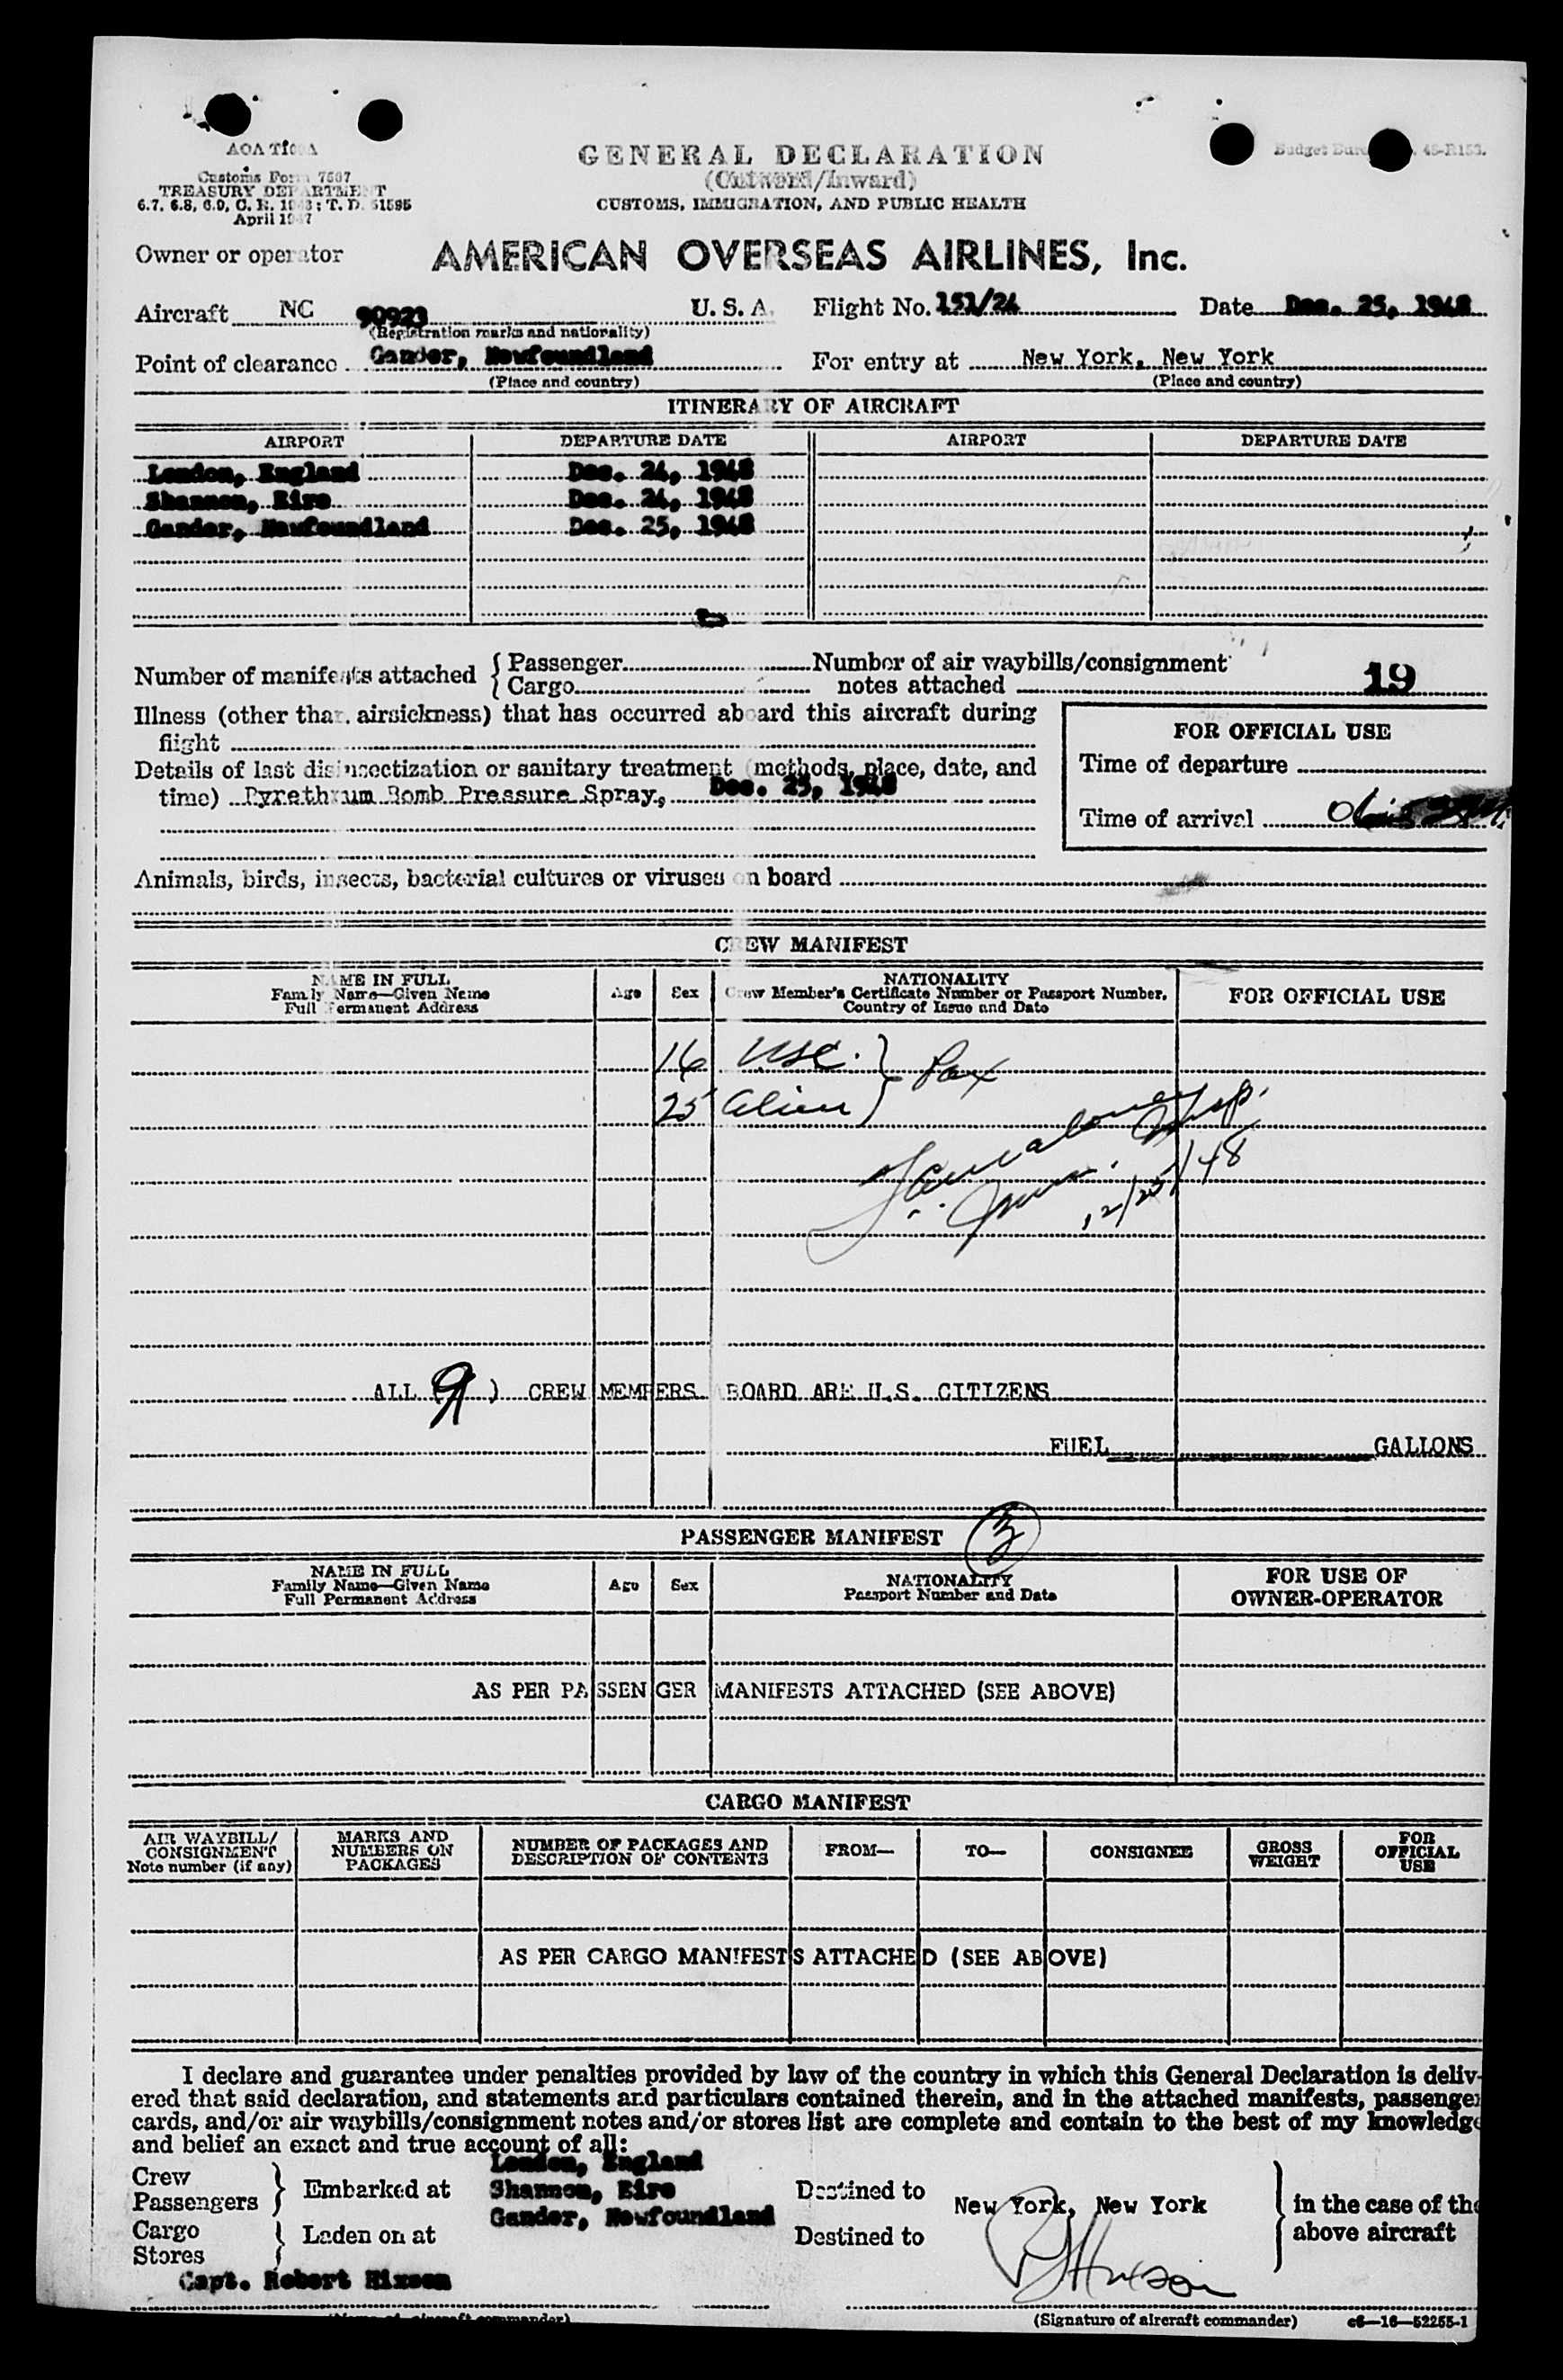 Customs Form 7507
TREASURY DEPARTMENT
April 1947
GENERAL DECLARATION
(Outward/Inward)
CUSTOMS, IMMIGRATION, AND PUBLIC HEALTH
Owner or operator AMERICAN OVERSEAS AIRLINES, Inc.
Aircraft NC 90923 U. S. A. Flight No. 151/24 Date Dec. 25, 1948
(Registration marks and nationality)
Point of clearance Gander, Newfoundland For entry at New York, New York
(Place and country) (Place and country)
ITINERARY OF AIRCRAFT
AIRPORT DEPARTURE DATE AIRPORT DEPARTURE DATE
London, England Dec. 24, 1948
Shannon, Eire Dec. 24, 1948
Gander, Newfoundland Dec. 25, 1948
Number of manifests attached { Passenger Number of air waybills/consignment
Cargo notes attached 19
Illness (other than airsickness) that has occurred aboard this aircraft during
flight
Details of last disinsectization or sanitary treatment (methods, place, date, and
time) Pyrethrum Bomb Pressure Spray, Dec. 25, 1948
FOR OFFICIAL USE
Time of departure
Time of arrival
Animals, birds, insects, bacterial cultures or viruses on board
CREW MANIFEST
NAME IN FULL
Family Name—Given Name
Full Permanent Address
Age Sex
NATIONALITY
Crew Member's Certificate Number or Passport Number,
Country of Issue and Date
FOR OFFICIAL USE
16 USC. } Pax
25 Alien
Insp.
12/25/48
ALL (9) CREW MEMBERS ABOARD ARE U.S. CITIZENS
FUEL GALLONS
PASSENGER MANIFEST 3
NAME IN FULL
Family Name—Given Name
Full Permanent Address
Age Sex
NATIONALITY
Passport Number and Date
FOR USE OF
OWNER-OPERATOR
AS PER PASSENGER MANIFESTS ATTACHED (SEE ABOVE)
CARGO MANIFEST
AIR WAYBILL/
CONSIGNMENT
Note number (if any)
MARKS AND
NUMBERS ON
PACKAGES
NUMBER OF PACKAGES AND
DESCRIPTION OF CONTENTS
FROM— TO— CONSIGNEE
GROSS
WEIGHT
FOR
OFFICIAL
USE
AS PER CARGO MANIFESTS ATTACHED (SEE ABOVE)
I declare and guarantee under penalties provided by law of the country in which this General Declaration is deliv-
ered that said declaration, and statements and particulars contained therein, and in the attached manifests, passenger
cards, and/or air waybills/consignment notes and/or stores list are complete and contain to the best of my knowledge
and belief an exact and true account of all:
Crew
Passengers } Embarked at
Cargo
Stores } Laden on at
London, England
Shannon, Eire
Gander, Newfoundland
Destined to
Destined to
New York, New York
} in the case of the
above aircraft
Capt. Robert Hixson
(Signature of aircraft commander) c6—16—52255-1